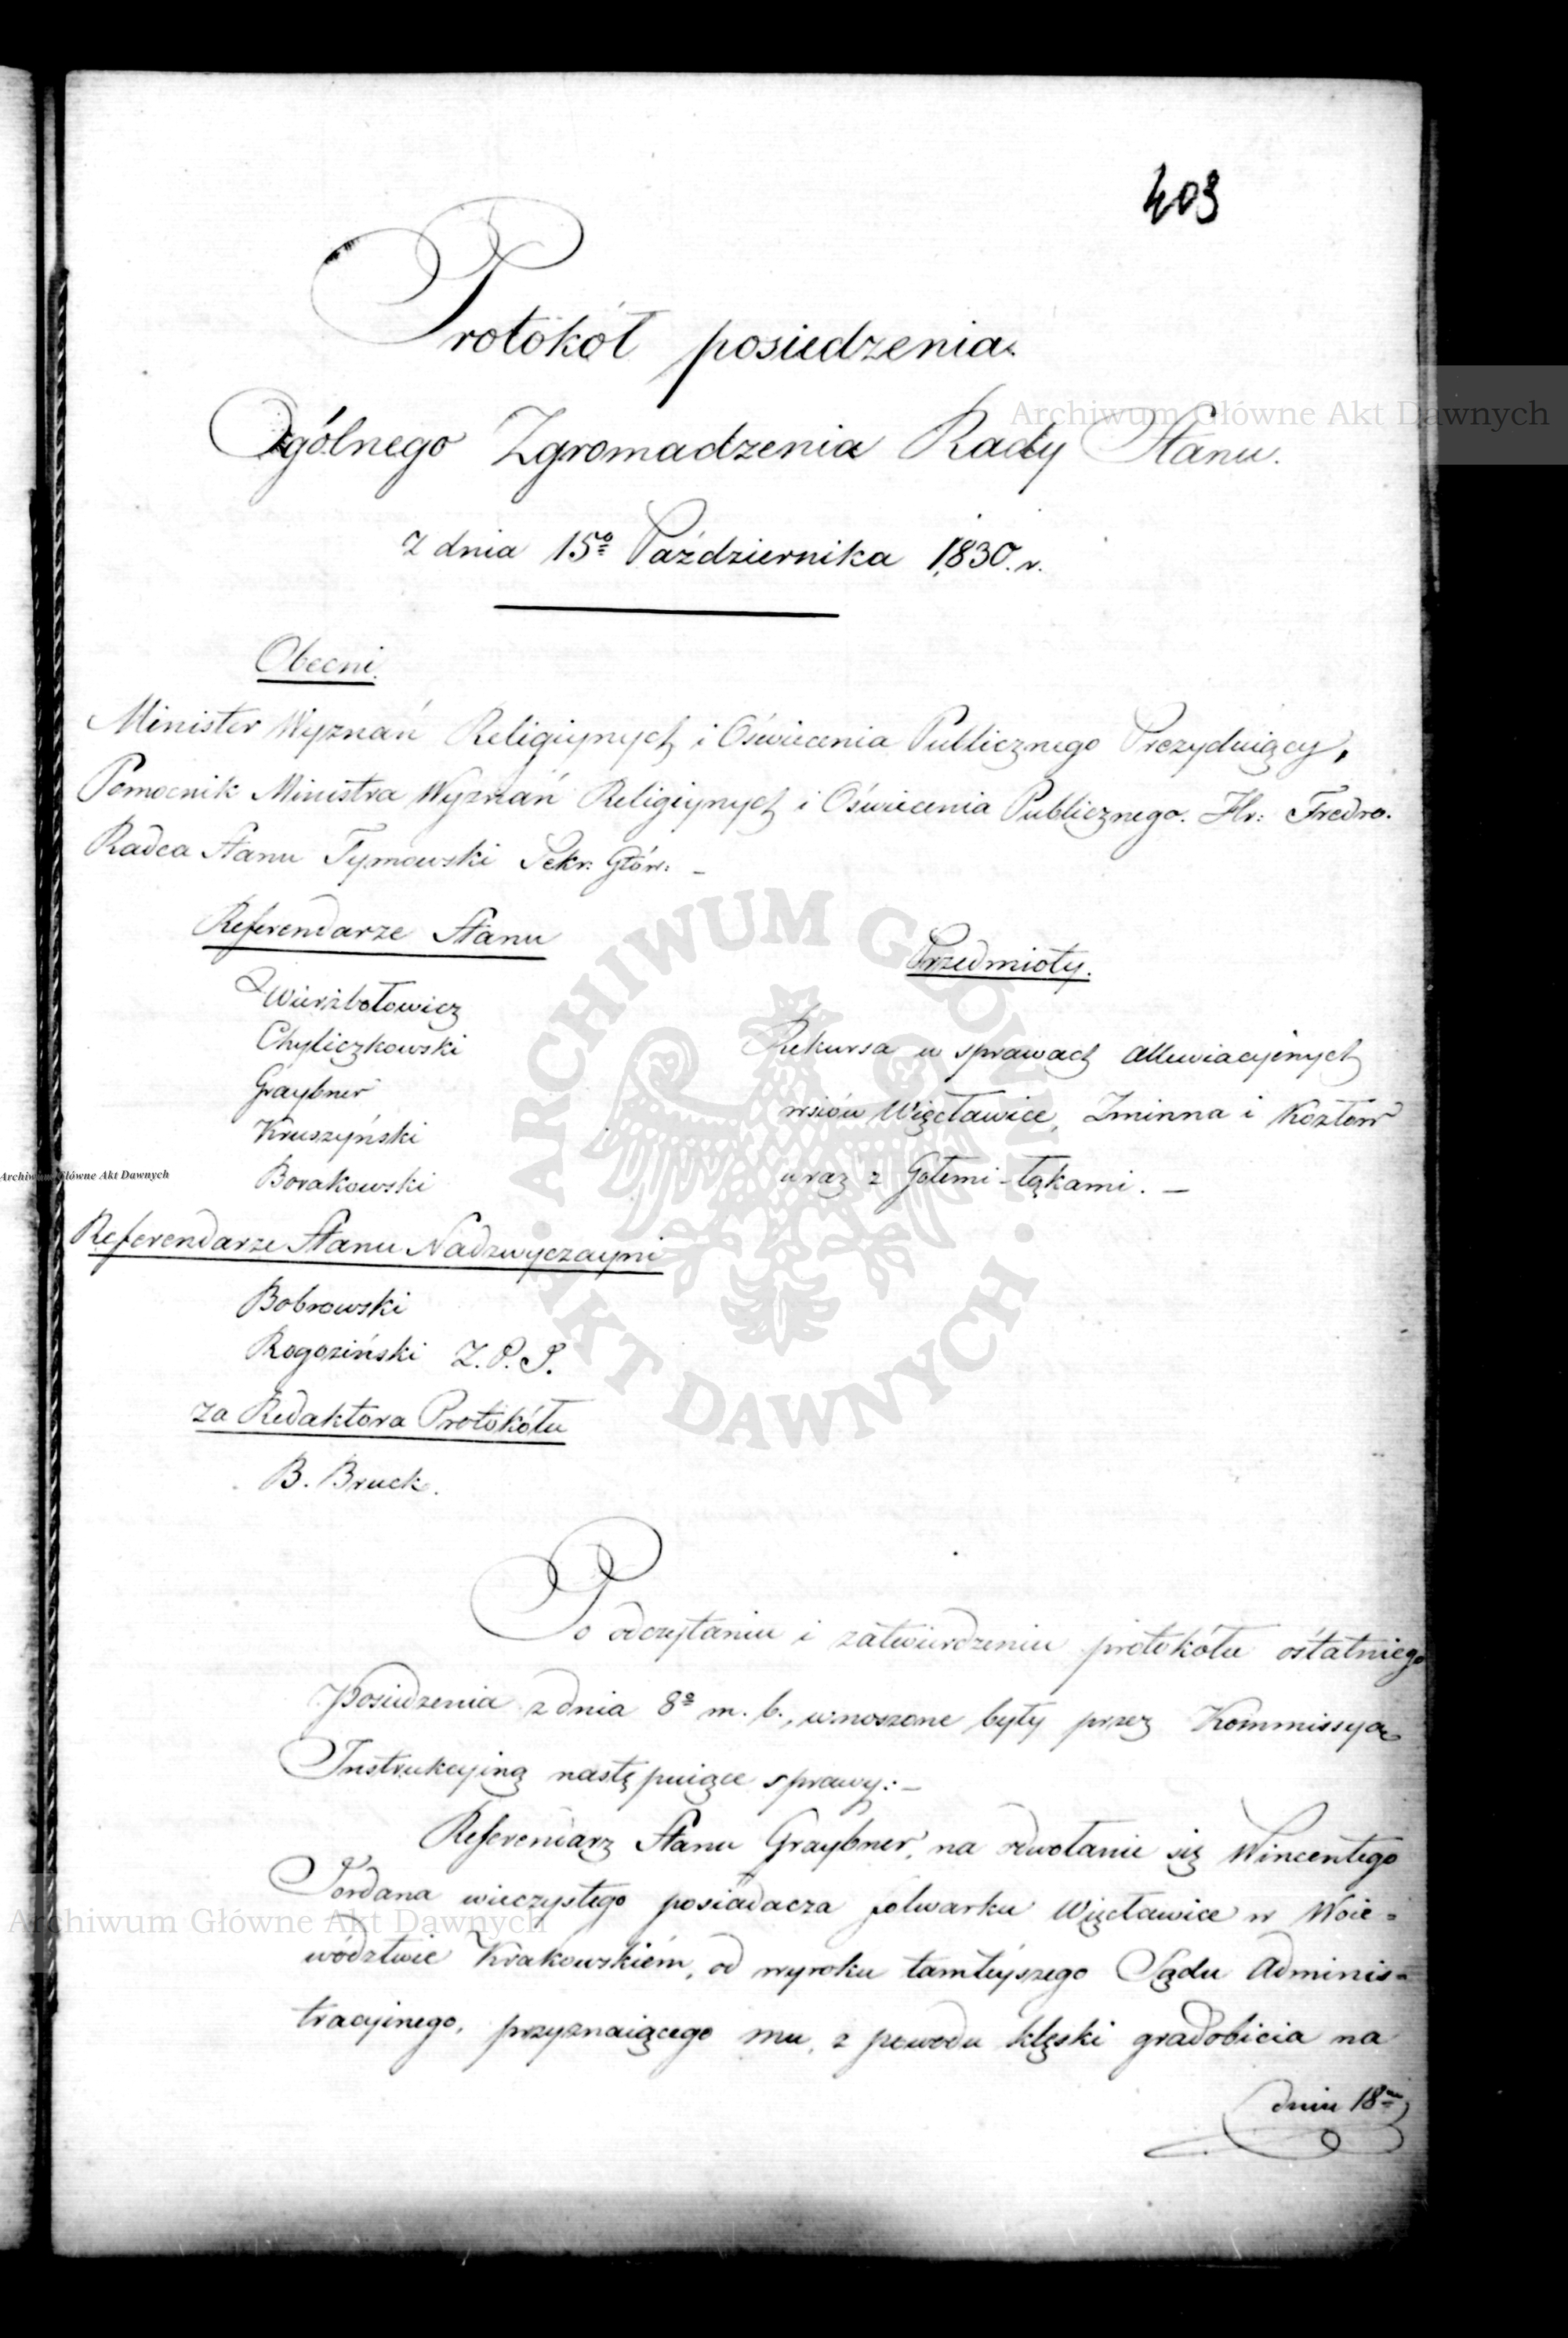 403
Protokół posiedzenia
Ogólnego Zgromadzenia Rady Stanu.
z dnia 15º Października 1830. r.
Obecni.
Minister Wyznań Religiynych i Oświecenia Publicznego Prezyduiący,
Pomocnik Ministra Wyznań Religiynych i Oświecenia Publicznego. Hr: Fredro.
Radca Stanu Tymowski Sekr: Głów: –
Referendarze Stanu
Wierzbołowicz
Chyliczkowski
Graybner
Kruszyński
Borakowski
Referendarze Stanu Nadzwyczayni
Bobrowski
Rogoziński Z. P. S.
za Redaktora Protokółu
B. Bruck.
Przedmioty.
Rekursa w sprawach allewiacyinych
wsiów Więcławice, Zminna i Kozłów
wraz z Gołemi-łąkami. –
Po odczytaniu i zatwierdzeniu protokółu ostatniego
Posiedzenia z dnia 8º m. b., wnoszone były przez Kommissyą
Instrukcyiną następuiące sprawy: –
Referendarz Stanu Graybner, na odwołanie się Wincentego
Jordana wieczystego posiadacza folwarku Więcławice w Woie=
wództwie Krakowskiém, od wyroku tamteyszego Sądu Adminis=
tracyinego, przyznaiącego mu, z powodu klęski gradobicia na
dniu 18m
Archiwum Główne Akt Dawnych
Archiwum Główne Akt Dawnych
Archiwum Główne Akt Dawnych
ARCHIWUM GŁÓWNE · AKT DAWNYCH ·